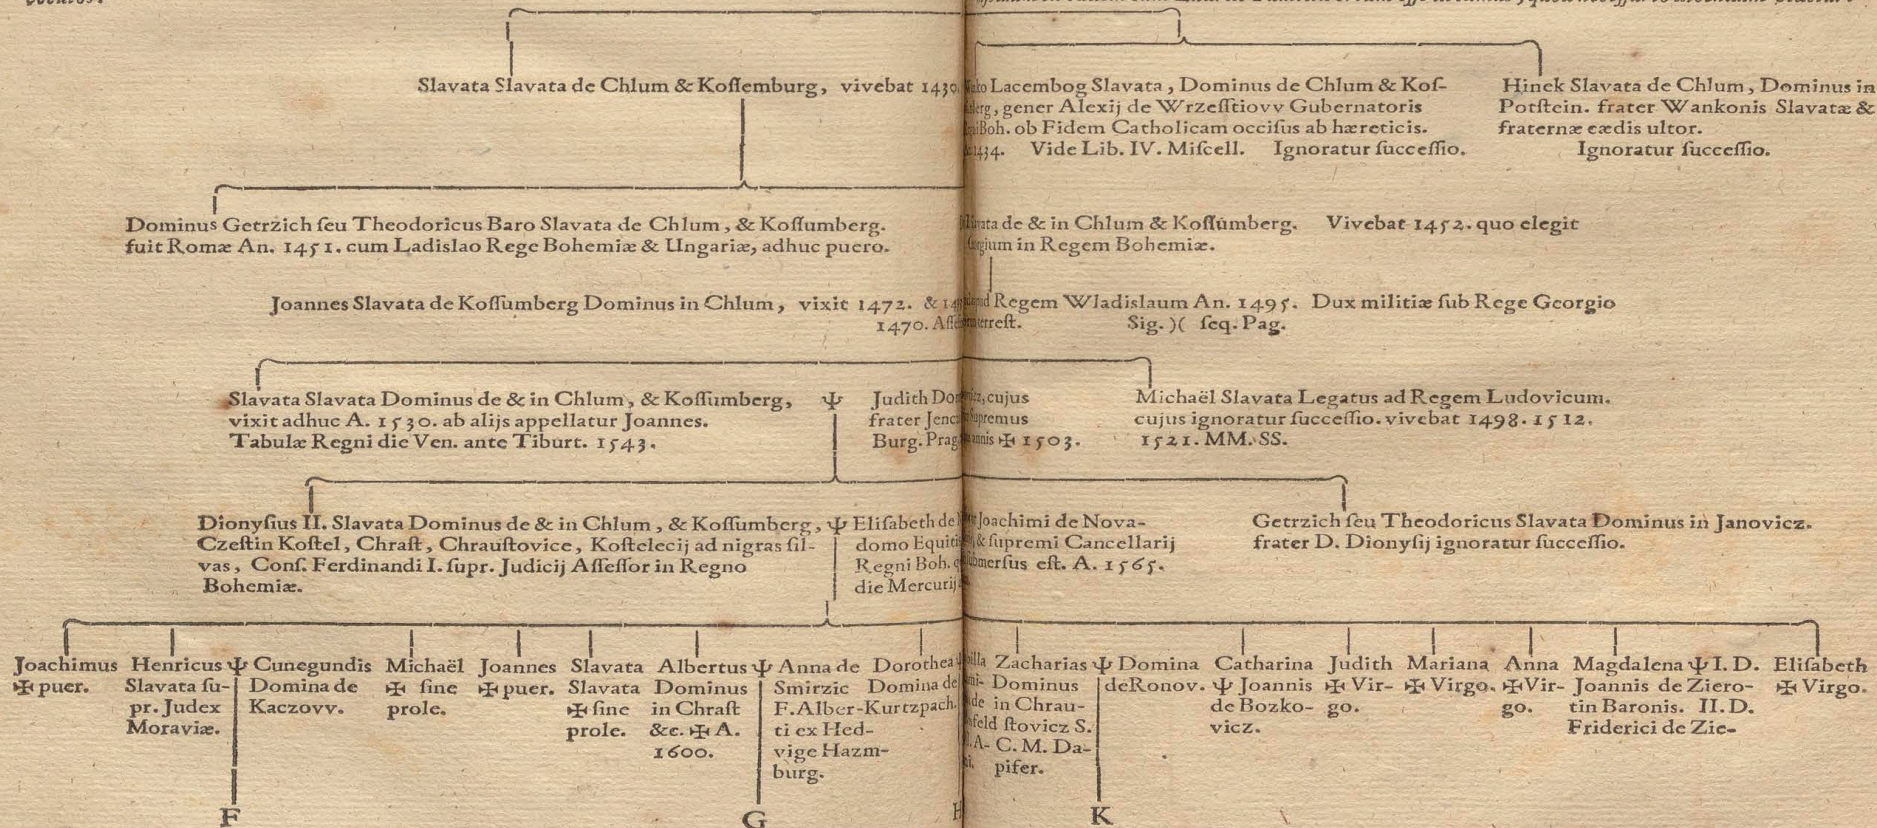 Slavata Slavata de Chlum & Koſſemburg, vivebat 1430.
Lacembog Slavata, Dominus de Chlum & Koſ-
gener Alexij de Wrzeſſtiovv Gubernatoris
Boh. ob Fidem Catholicam occiſus ab hæreticis.
1434. Vide Lib. IV. Miſcell. Ignoratur ſucceſſio.
Hinek Slavata de Chlum, Dominus in
Potſtein. frater Wankonis Slavatæ &
fraternæ cædis ultor.
Ignoratur ſucceſſio.
Dominus Getrzich ſeu Theodoricus Baro Slavata de Chlum, & Koſſumberg.
fuit Romæ An. 1451. cum Ladislao Rege Bohemiæ & Ungariæ, adhuc puero.
de & in Chlum & Koſſumberg. Vivebat 1452. quo elegit
in Regem Bohemiæ.
Joannes Slavata de Koſſumberg Dominus in Chlum, vixit 1472. &
Regem Wladislaum An. 1495. Dux militiæ ſub Rege Georgio
1470.
Sig. )( ſeq. Pag.
Slavata Slavata Dominus de & in Chlum, & Koſſumberg,
vixit adhuc A. 1530. ab alijs appellatur Joannes.
Tabulæ Regni die Ven. ante Tiburt. 1543.
Ψ
Judith cujus
frater
Burg. Prag. ✠ 1503.
Michaël Slavata Legatus ad Regem Ludovicum.
cujus ignoratur ſucceſſio. vivebat 1498. 1512.
1521. MM. SS.
Dionyſius II. Slavata Dominus de & in Chlum, & Koſſumberg,
Czeſtin Koſtel, Chraſt, Chrauſtovice, Koſtelecij ad nigras ſil-
vas, Conſ. Ferdinandi I. ſupr. Judicij Aſſeſſor in Regno
Bohemiæ.
Ψ Eliſabeth de Joachimi de Nova-
domo & ſupremi Cancellarij
Regni Boh. eſt. A. 1565.
die Mercurij
Getrzich ſeu Theodoricus Slavata Dominus in Janovicz.
frater D. Dionyſij ignoratur ſucceſſio.
Joachimus
✠ puer.
Henricus Ψ
Slavata ſu-
pr. Judex
Moraviæ.
Cunegundis
Domina de
Kaczovv.
Michaël
✠ ſine
prole.
Joannes
✠ puer.
Slavata
Slavata
✠ ſine
prole.
Albertus Ψ
Dominus
in Chraſt
&c. ✠ A.
1600.
Anna de
Smirzic
F. Alber-
ti ex Hed-
vige Hazm-
burg.
Dorothea
Domina de
Kurtzpach.
Zacharias Ψ
Dominus
in Chrau-
ſtovicz S.
C. M. Da-
pifer.
Domina
de Ronov.
Catharina
Ψ Joannis
de Bozko-
vicz.
Judith
✠ Vir-
go.
Mariana
✠ Virgo.
Anna
✠ Vir-
go.
Magdalena Ψ I. D.
Joannis de Ziero-
tin Baronis. II. D.
Friderici de Zie-
Eliſabeth
✠ Virgo.
F
G
H
K